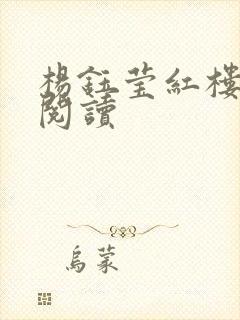 楊鈺瑩紅樓
閱讀
烏蒙